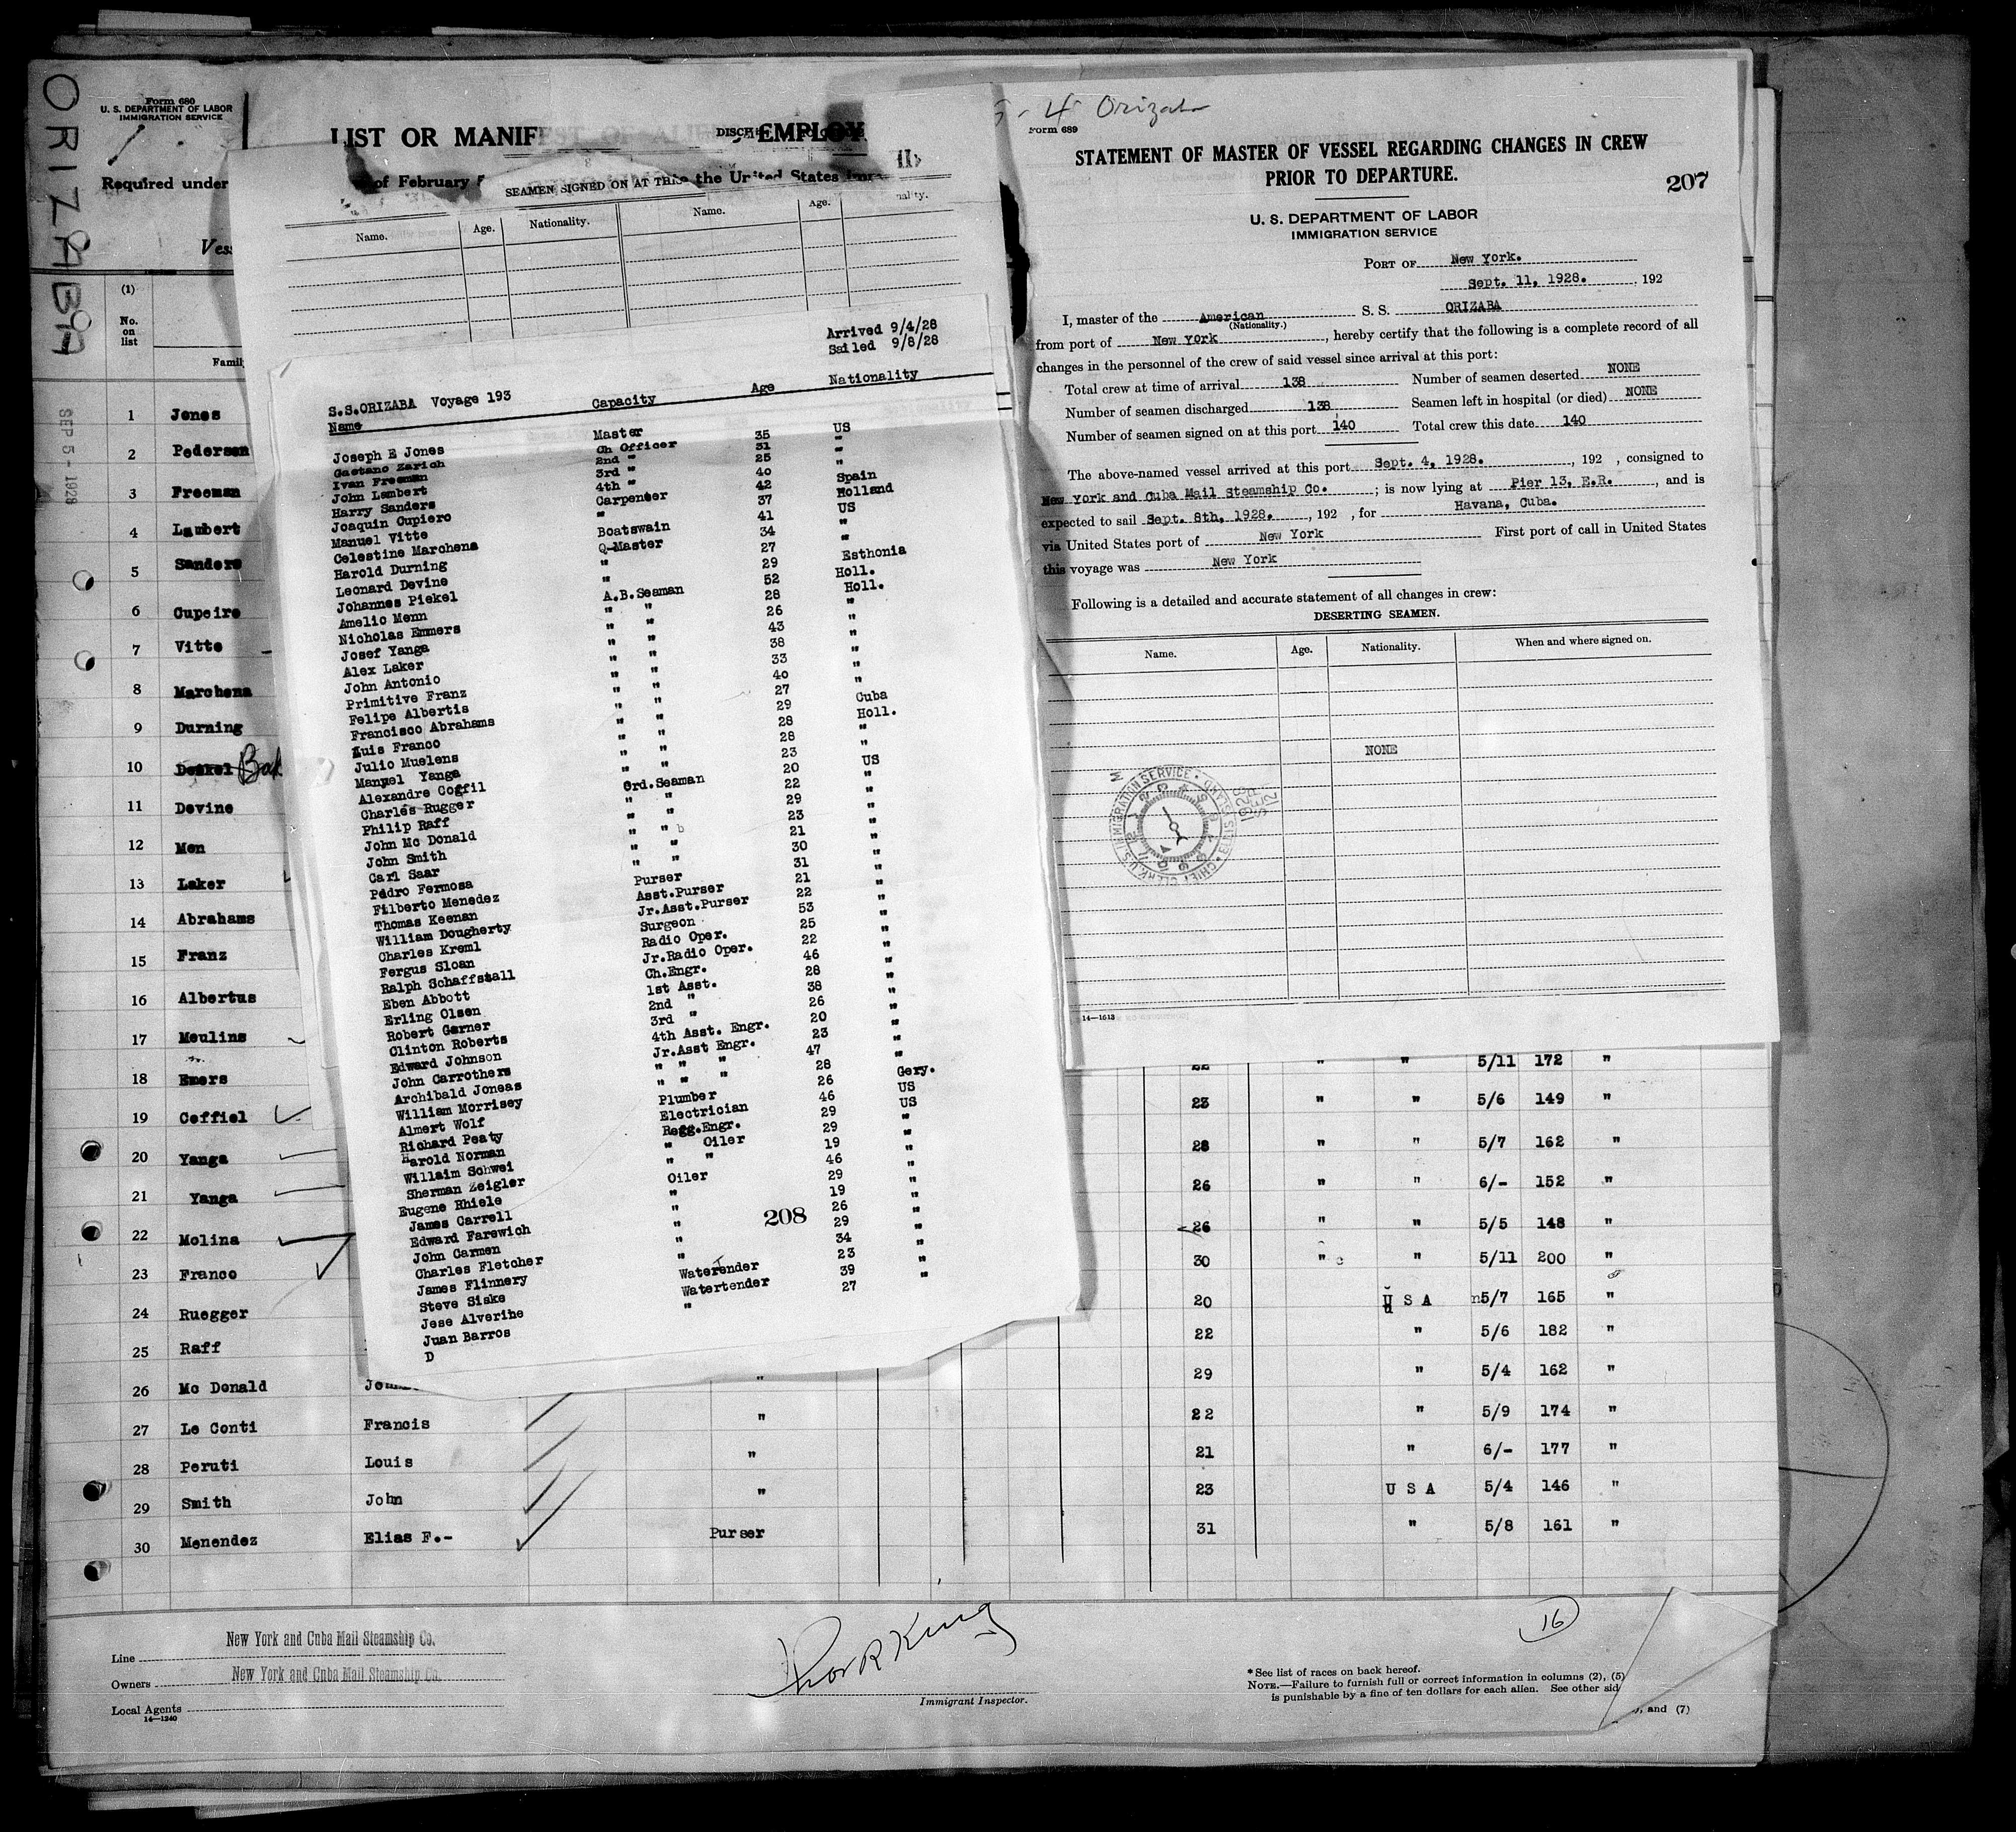 ORIZABA
SEP 5 - 1928
Form 680
U. S. DEPARTMENT OF LABOR
IMMIGRATION SERVICE
LIST OR MANIFEST OF ALIEN EMPLOY
Required under
of February
the United States
Vess
(1)
No. on list
Famil
1 Jones
2 Pedersen
3 Freeman
4 Lambert
5 Sanders
6 Cupeiro
7 Vitte
8 Marchena
9 Durning
10
11 Devine
12 Men
13 Laker
14 Abrahams
15 Franz
16 Albertus
17 Meulins
18 Emers
19 Coffiel
20 Yanga
21 Yanga
22 Molina
23 Franco
24 Ruegger
25 Raff
26 Mc Donald
27 Le Conti Francis " 22 " 5/9 174 "
28 Peruti Louis " 21 " 6/- 177 "
29 Smith John " 23 U S A 5/4 146 "
30 Menendez Elias F.- Purser 31 " 5/8 161 "
22 " " 5/11 172 "
23 " " 5/6 149 "
28 " " 5/7 162 "
26 " " 6/- 152 "
26 " " 5/5 148 "
30 " " 5/11 200 "
20 U S A 5/7 165 "
22 " 5/6 182 "
29 " 5/4 162 "
Line New York and Cuba Mail Steamship Co.
Owners New York and Cuba Mail Steamship Co.
Local Agents
14—1240
Immigrant Inspector.
16
* See list of races on back hereof.
NOTE.—Failure to furnish full or correct information in columns (2), (5)
is punishable by a fine of ten dollars for each alien. See other sid
, and (7)
SEAMEN SIGNED ON AT THIS
Name. Age. Nationality. Name. Age.
Arrived 9/4/28
Sailed 9/8/28
S.S.ORIZABA Voyage 193
Name Capacity Age Nationality
Joseph E Jones Master 35 US
Gaetano Zarich Ch Officer 31 "
Ivan Freeman 2nd " 25 "
John Lambert 3rd " 40
Harry Sanders 4th " 42
Joaquin Cupiero Carpenter 37 Spain
Manuel Vitte " 41 Holland
Celestine Marchena Boatswain 34 US
Harold Durning Q-Master 27 "
Leonard Devine " 29 "
Johannes Piekel " 52 Esthonia
Amelic Menn A.B.Seaman 28 Holl.
Nicholas Emmers " " 26 Holl.
Josef Yanga " " 43 "
Alex Laker " " 38 "
John Antonio " " 33 "
Primitive Franz " " 40 "
Felipe Albertis " " 27 "
Francisco Abrahams " " 29 "
Luis Franco " " 28 Cuba
Julio Muelens " " 28 Holl.
Manuel Yanga " " 23 "
Alexandre Coffil " " 20 "
Charles Rugger Ord.Seaman 22 US
Philip Raff " " 29 "
John Mc Donald " " 23 "
John Smith " " 21 "
Carl Saar " " 30 "
Pedro Fermosa " " 31 "
Filberto Menedez Purser 21 "
Thomas Keenan Asst.Purser 22 "
William Dougherty Jr.Asst.Purser 53 "
Charles Kreml Surgeon 25 "
Fergus Sloan Radio Oper. 22 "
Ralph Schaffstall Jr.Radio Oper. 46 "
Eben Abbott Ch.Engr. 28 "
Erling Olsen 1st Asst. 38 "
Robert Garner 2nd " 26 "
Clinton Roberts 3rd " 20 "
Edward Johnson 4th Asst. Engr. 23 "
John Carrothers Jr.Asst Engr. 47 "
Archibald Joneas " " " 28 "
William Morrisey " " " 26 Gery.
Almert Wolf Plumber 46 US
Richard Peaty Electrician 29 US
Harold Norman Regg.Engr. 29 "
Willaim Schwei " Oiler 19 "
Sherman Zeigler " " 46 "
Eugene Rhiele Oiler 29 "
James Carrell " 19 "
Edward Farewich " 26 "
John Carmen " 29 "
Charles Fletcher " 34 "
James Flinnery " 23 "
Steve Siske Watertender 39 "
Jese Alverihe Watertender 27 "
Juan Barros "
D
208
4 Orizaba
Form 689
STATEMENT OF MASTER OF VESSEL REGARDING CHANGES IN CREW
PRIOR TO DEPARTURE.
207
U. S. DEPARTMENT OF LABOR
IMMIGRATION SERVICE
PORT OF New York.
Sept. 11, 1928. , 192
I, master of the American S. S. ORIZABA
(Nationality.)
from port of New York , hereby certify that the following is a complete record of all
changes in the personnel of the crew of said vessel since arrival at this port:
Total crew at time of arrival 138 Number of seamen deserted NONE
Number of seamen discharged 138 Seamen left in hospital (or died) NONE
Number of seamen signed on at this port 140 Total crew this date 140
The above-named vessel arrived at this port Sept. 4, 1928. , 192 , consigned to
New York and Cuba Mail Steamship Co. ; is now lying at Pier 13, E.R. , and is
expected to sail Sept. 8th, 1928. , 192 , for Havana, Cuba.
via United States port of New York First port of call in United States
this voyage was New York
Following is a detailed and accurate statement of all changes in crew:
DESERTING SEAMEN.
Name. Age. Nationality. When and where signed on.
NONE
CHIEF CLERK U.S. IMMIGRATION SERVICE • ELLIS ISLAND
1928 SEP 12
14—1613